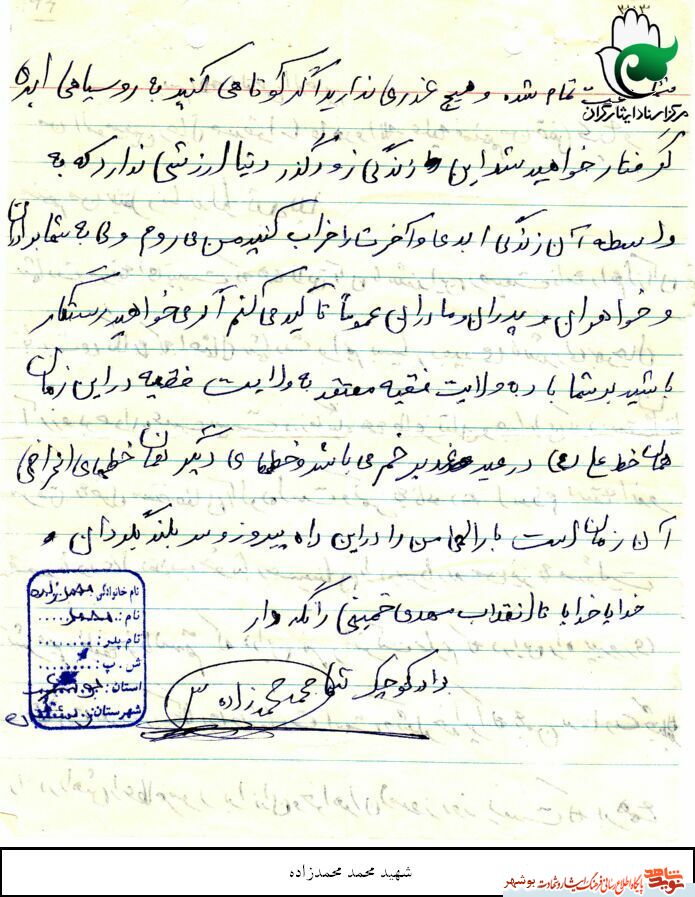 ۳۰۰۳۰
مرکز اسناد ایثارگران
تمام شده و هیچ عذری ندارید اگر کوتاهی کنید به روسیاهی ابدی
گرفتار خواهید شد این زندگی زودگذر دنیا ارزشی ندارد که به
واسطه آن زندگی ابدی و آخرت را خراب کنید من می روم ولی به شما برادران
و خواهران و پدران و مادران عموماً تأکید می کنم اگر می خواهید رستگار
باشید بر شما باد به ولایت فقیه معتقد به ولایت فقیه در این زمان
همان خط علی (ع) در عید غدیر خم می باشد و خطهای دیگر همان خطهای انحرافی
آن زمان است بارالهی من را در این راه پیروز و سربلند بگردان
خدایا خدایا تا انقلاب مهدی خمینی را نگه دار
برادر کوچک شما محمد محمدزاده
نام خانوادگی: محمدزاده
نام: محمد
نام پدر:
ش . پ:
استان: بوشهر
شهرستان:
شهید محمد محمدزاده
نوید شاهد پایگاه اطلاع رسانی فرهنگ ایثار و شهادت بوشهر